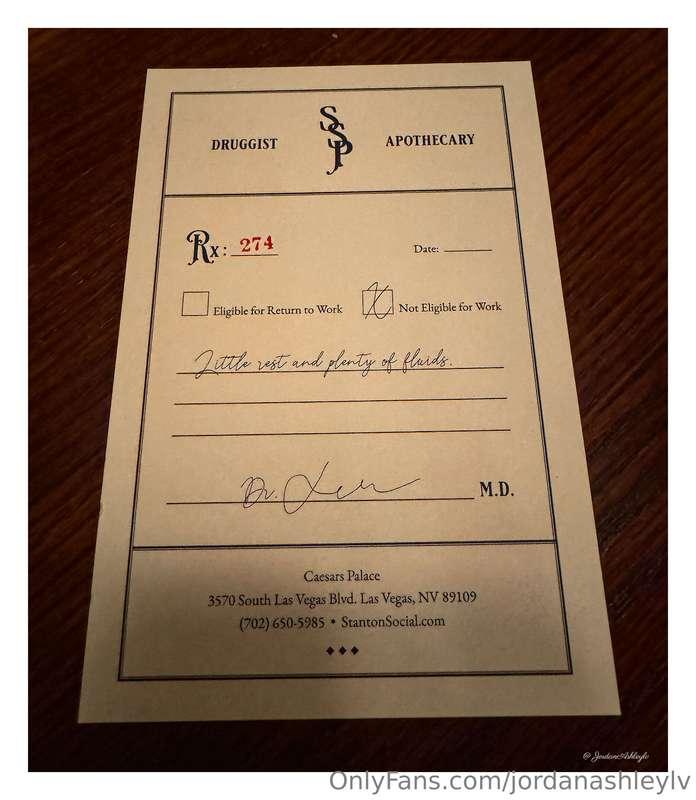 DRUGGIST SSP APOTHECARY
Rx: 274 Date:
Eligible for Return to Work Not Eligible for Work
Little rest and plenty of fluids.
Dr. M.D.
Caesars Palace
3570 South Las Vegas Blvd. Las Vegas, NV 89109
(702) 650-5985 • StantonSocial.com
@JordanAshleylv
OnlyFans.com/jordanashleylv